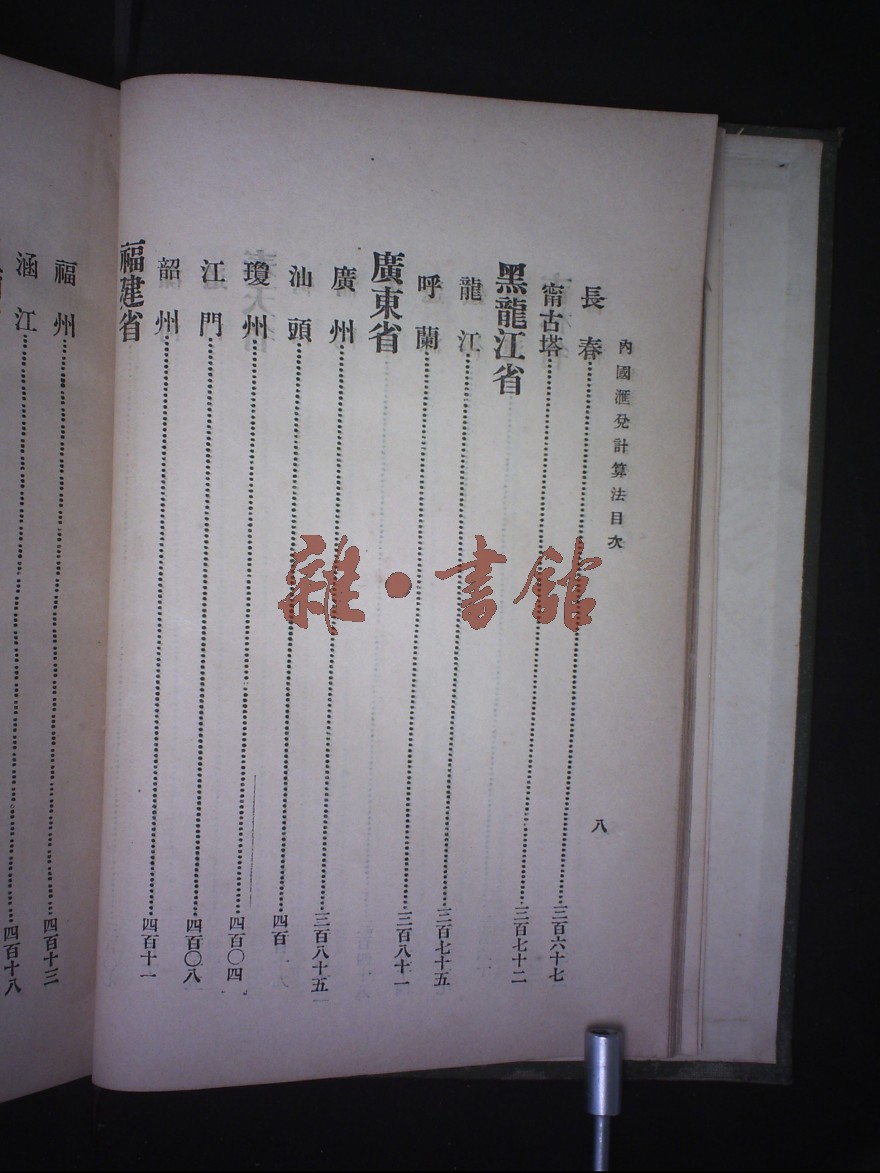 內國滙兌計算法目次 八
長春 三百六十七
甯古塔 三百七十二
黑龍江省
龍江 三百七十五
呼蘭 三百八十一
廣東省
廣州 三百八十五
汕頭 四百
瓊州 四百〇四
江門 四百〇八
韶州 四百十一
福建省
福州 四百十三
涵江 四百十八
雜·書館